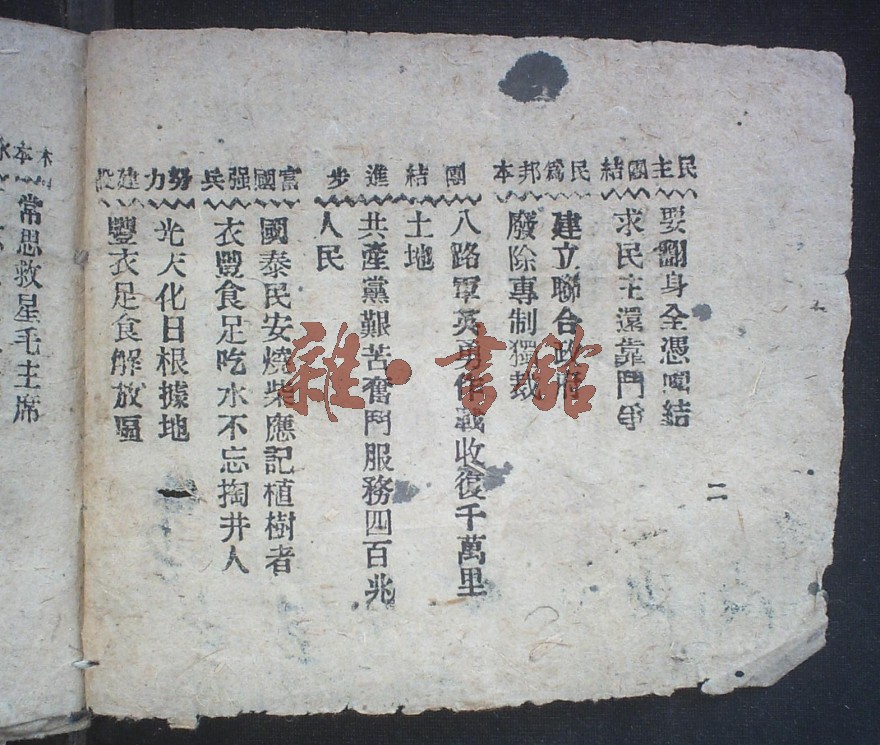 二
民主團結
要翻身全憑團結
求民主還靠鬥爭
民爲邦本
建立聯合政府
廢除專制獨裁
團結進步
八路軍英勇作戰收復千萬里
土地
共產黨艱苦奮鬥服務四百兆
人民
富國强兵
國泰民安燒柴應記植樹者
衣豐食足吃水不忘掏井人
努力建設
光天化日根據地
豐衣足食解放區
木本水
常思救星毛主席
雜·書館